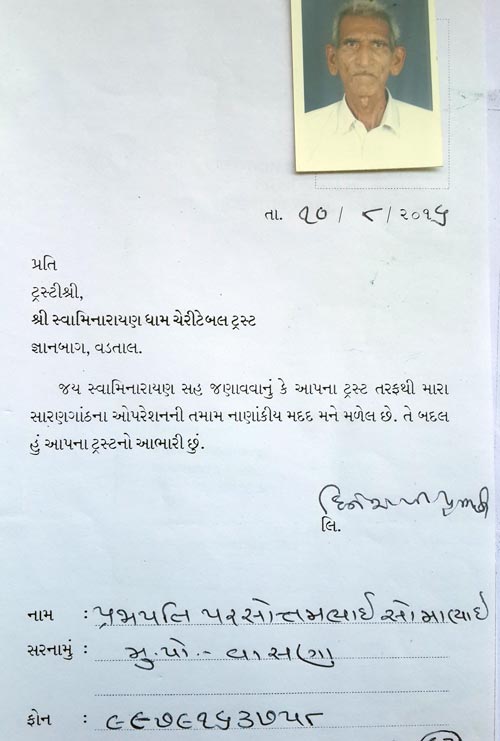 તા. ૧૦ / ૮ / ૨૦૧૬
પ્રતિ
ટ્રસ્ટીશ્રી,
શ્રી સ્વામિનારાયણ ધામ ચેરીટેબલ ટ્રસ્ટ
જ્ઞાનબાગ, વડતાલ.
જય સ્વામિનારાયણ સહ જણાવવાનું કે આપના ટ્રસ્ટ તરફથી મારા
સારણગાંઠના ઓપરેશનની તમામ નાણાંકીય મદદ મને મળેલ છે. તે બદલ
હું આપના ટ્રસ્ટનો આભારી છું.
લિ.
નામ : પ્રજાપતિ પરસોત્તમભાઈ સોમાભાઈ
સરનામું : મુ.પો.- વાસણા
ફોન : ૯૯૭૯૧૬૩૭૫૮